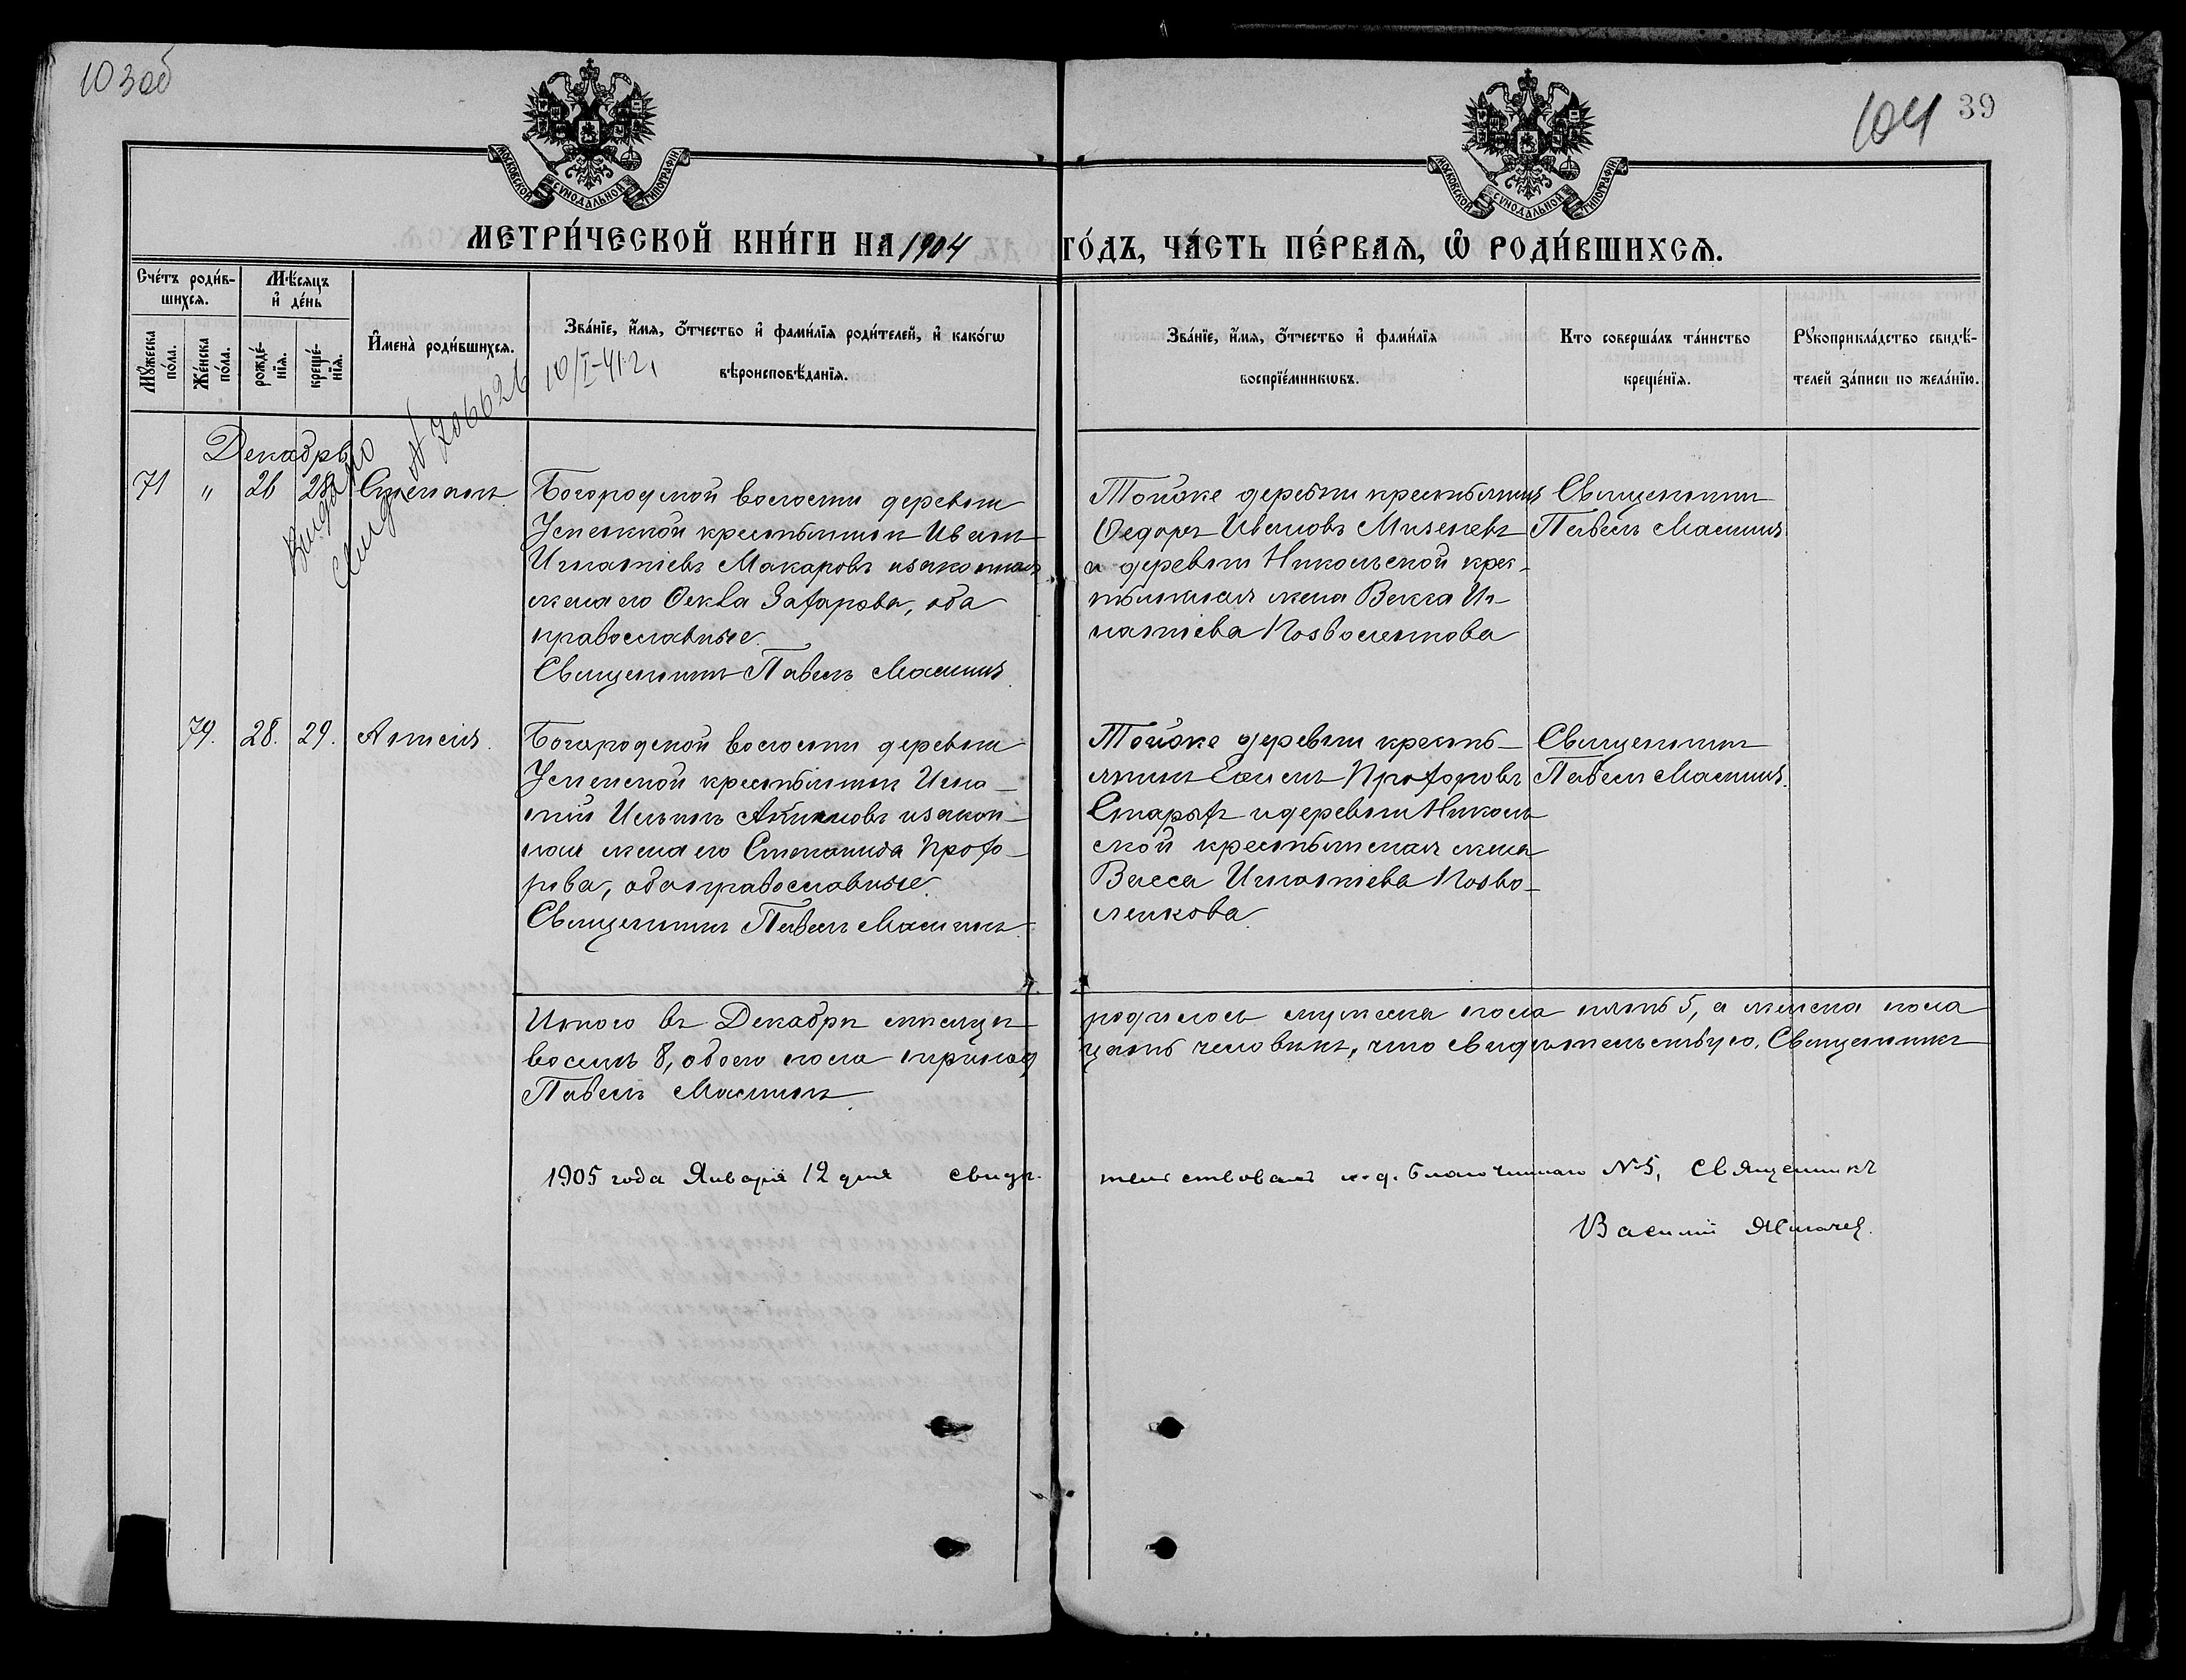 103об
104 39
МОСКОВСКОЙ СѴНОДАЛЬНОЙ ТИПОГРАФІИ
МОСКОВСКОЙ СѴНОДАЛЬНОЙ ТИПОГРАФІИ
МЕТРИ́ЧЕСКОЙ КНИ́ГИ НА 1904 ГО́ДЪ, ЧА́СТЬ ПЕ́РВАЯ, Ѡ҆ РОДИ́ВШИХСЯ.
Сче́тъ роди́в-
шихся.
Мꙋ́жеска по́ла.
Же́нска по́ла.
Мѣ́сяцъ
и҆ де́нь
рожде́-
нїя.
креще́-
нїя.
И҆мена̀ роди́вшихся.
Зва́нїе, и҆́мя, ѻ҆́тчество и҆ фами́лїя роди́телей, и҆ како́гѡ
вѣроисповѣ́данїя.
Зва́нїе, и҆́мя, ѻ҆́тчество и҆ фами́лїя
воспрїе́мникѡвъ.
Кто соверша́лъ та́инство
креще́нїя.
Рꙋкоприкла́дство свидѣ́-
телей за́писи по жела́нїю.
10/I-41 г.
Выдано
Свид. №
Декабрь
71 " 26 28 Степанъ
Богородской волости деревни
Успенской крестьянинъ Иванъ
Игнатіевъ Макаровъ и законная
жена его Ѳекла Захарова, оба
православные.
Священникъ Павелъ Масминъ.
Тойже деревни крестьянинъ
Ѳедоръ Ивановъ Мизеневъ
и деревни Никольской крес-
тьянская жена Васса Иг-
натіева Позволенкова
Священникъ
Павелъ Масминъ
79. 28. 29. Анисія.
Богородской волости деревни
Успенской крестьянинъ Игна-
тій Ильинъ и закон-
ная жена его Степанида Прохо-
рова, оба православные.
Священникъ Павелъ Масминъ.
Тойже деревни кресть-
янинъ Прохоровъ
Старыхъ и деревни Николь-
ской крестьянская жена
Васса Игнатіева Позво-
ленкова.
Священникъ
Павелъ Масминъ.
Итого въ Декабрѣ мѣсяцѣ родилось мужеска пола пять 5, а женска пола
восемь 8, обоего пола тринад цать человѣкъ, что свидѣтельствую. Священникъ
Павелъ Масминъ.
1905 года Января 12 дня свидѣ- тельствовалъ и. д. благочиннаго № 5, Священникъ
Василій